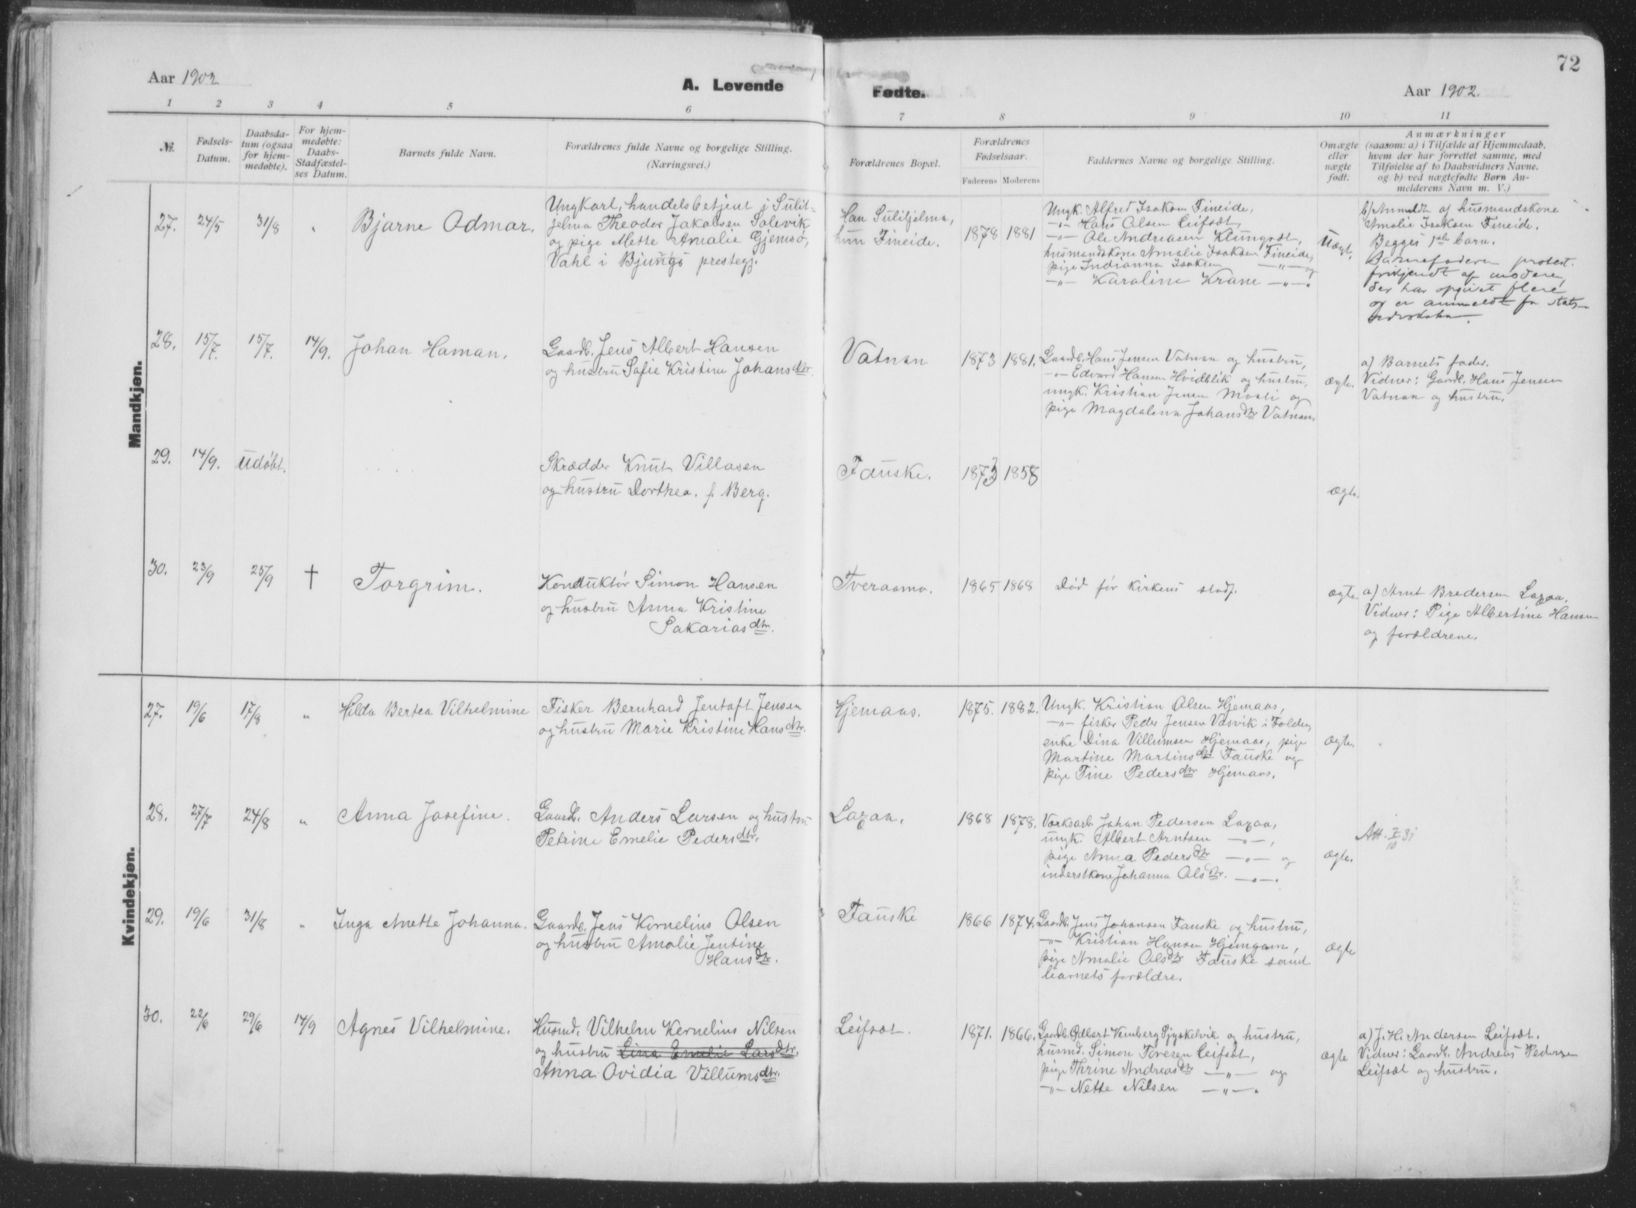 72
Aar 1902
A. Levende
Fødte.
Aar 1902.
1 2 3 4 5 6 7 8 9 10 11
№.
Fødsels-
Datum.
Daabsda-
tum (ogsaa
for hjem-
medøbte).
For hjem-
medøbte:
Daabs-
Stadfæstel-
ses Datum.
Barnets fulde Navn.
Forældrenes fulde Navne og borgelige Stilling.
(Næringsvei.)
Forældrenes Bopæl.
Forældrenes
Fødselsaar.
Faderens Moderens
Faddernes Navne og borgelige Stilling.
Om ægte
eller
nægte
født.
Anmærkninger
(saasom: a) i Tilfælde af Hjemmedaab,
hvem der har forrettet samme, med
Tilføielse af to Daabsvidners Navne.
og b) ved nægtefødte Børn An-
melderens Navn m. V.)
Mandkjøn.
27. 24/5 31/8 " Bjarne Odmar.
Ungkarl, handelsbetjent i Sulit-
jelma Theodor Jakobsen Solevik
og pige Mette Amalie Gjemsø,
Vahl i Bjugn presteg.
Han Sulitjelma,
hun Fineide.
1878 1881
Ungk. Alfred Isaksen Fineide,
-"- Hans Olsen Leifsæt,
-"- Ole Andreasen Klungsæt,
husmandskone Amalie Isaksen Fineide,
pige Indianna Isaksen -"- og
-"- Karoline Krane -"-.
Uægte.
b) Anmeldt af husmandskone
Amalie Isaksen Fineide.
Begges 1ste barn.
Barnefaderen protest.
frikjendt af moderen,
der har opgivet flere
og er anmeldt for stats-
28. 15/7. 15/7. 14/9. Johan Haman.
Gaardb. Jens Albert Hansen
og hustru Sofie Kristine Johansdtr.
Vatnan
1873 1881.
Gaardb. Hans Jensen Vatnan og hustru,
-"- Edvard Hansen Hvidblik og hustru,
ungk. Kristian Jensen Moati og
pige Magdalena Johansdtr Vatnan.
ægte.
a) Barnets fader.
Vidner: Gaardb. Hans Jensen
Vatnan og hustru.
29. 14/9. Udøbt.
Skrædder Knut Villasen
og hustru Dorthea. f. Berg.
Fauske.
1873 1858
ægte.
30. 23/9 25/9 † Torgrim.
Konduktør Simon Hansen
og hustru Anna Kristine
Sakariasdtr.
Tveraamo.
1865 1868
Død før kirkens stadf.
ægte
a) Arnt Bredesen Lagaa.
Vidner: Pige Albertine Hansen
og forældrene.
Kvindekjøn.
27. 19/6 17/8 " Hilda Bertea Vilhelmine
Fisker Bernhard Jentoft Jensen
og hustru Marie Kristine Hansdtr.
Hjemaas.
1875. 1882.
Ungk. Kristian Olsen Hjemaas,
-"- fisker Peder Jensen Vasvik i Folden,
enke Dina Villumsen Hjemaas, pige
Martine Martinsdtr Fauske og
pige Tine Pedersdtr Hjemaas.
ægte.
28. 27/7 24/8 " Anna Josefine.
Gaardb. Anders Larsen og hustru
Petrine Emelie Pedersdtr.
Lagaa.
1868 1878.
Vorksarb. Johan Pedersen Lagaa,
ungk. Albert Arntsen -"-,
pige Anna Pedersdtr -"- og
inderstkone Johanna Olsdtr. -"-.
ægte.
Att. 7/10 31
29. 19/6 31/8 " Inga Anette Johanna.
Gaardb. Jens Kornelius Olsen
og hustru Amalie Jentine
Hansdtr.
Fauske
1866 1874.
Gaardb. Jens Johansen Fauske og hustru,
-"- Kristian Hansen Hjemgam,
pige Amalie Olsdtr Fauske samt
barnets forældre.
ægte
30. 22/6 29/6 14/9 Agnes Vilhelmine.
Husmd. Vilhelm Kornelius Nilsen
og hustru Lina Emelie Larsdtr.
Anna Ovidia Villumsdtr.
Leifsæt.
1871. 1866.
Gaardb. Edbert Kemberg Tjyskelvik og hustru,
husmd. Simon Toresen Leifsæt,
pige Thrine Andreasdtr -"- og
-"- Nette Nilsen -"-.
ægte
a) J. H. Andersen Leifsæt.
Vidner: Gaardb. Andreas Pedersen
Leifsæt og hustru.